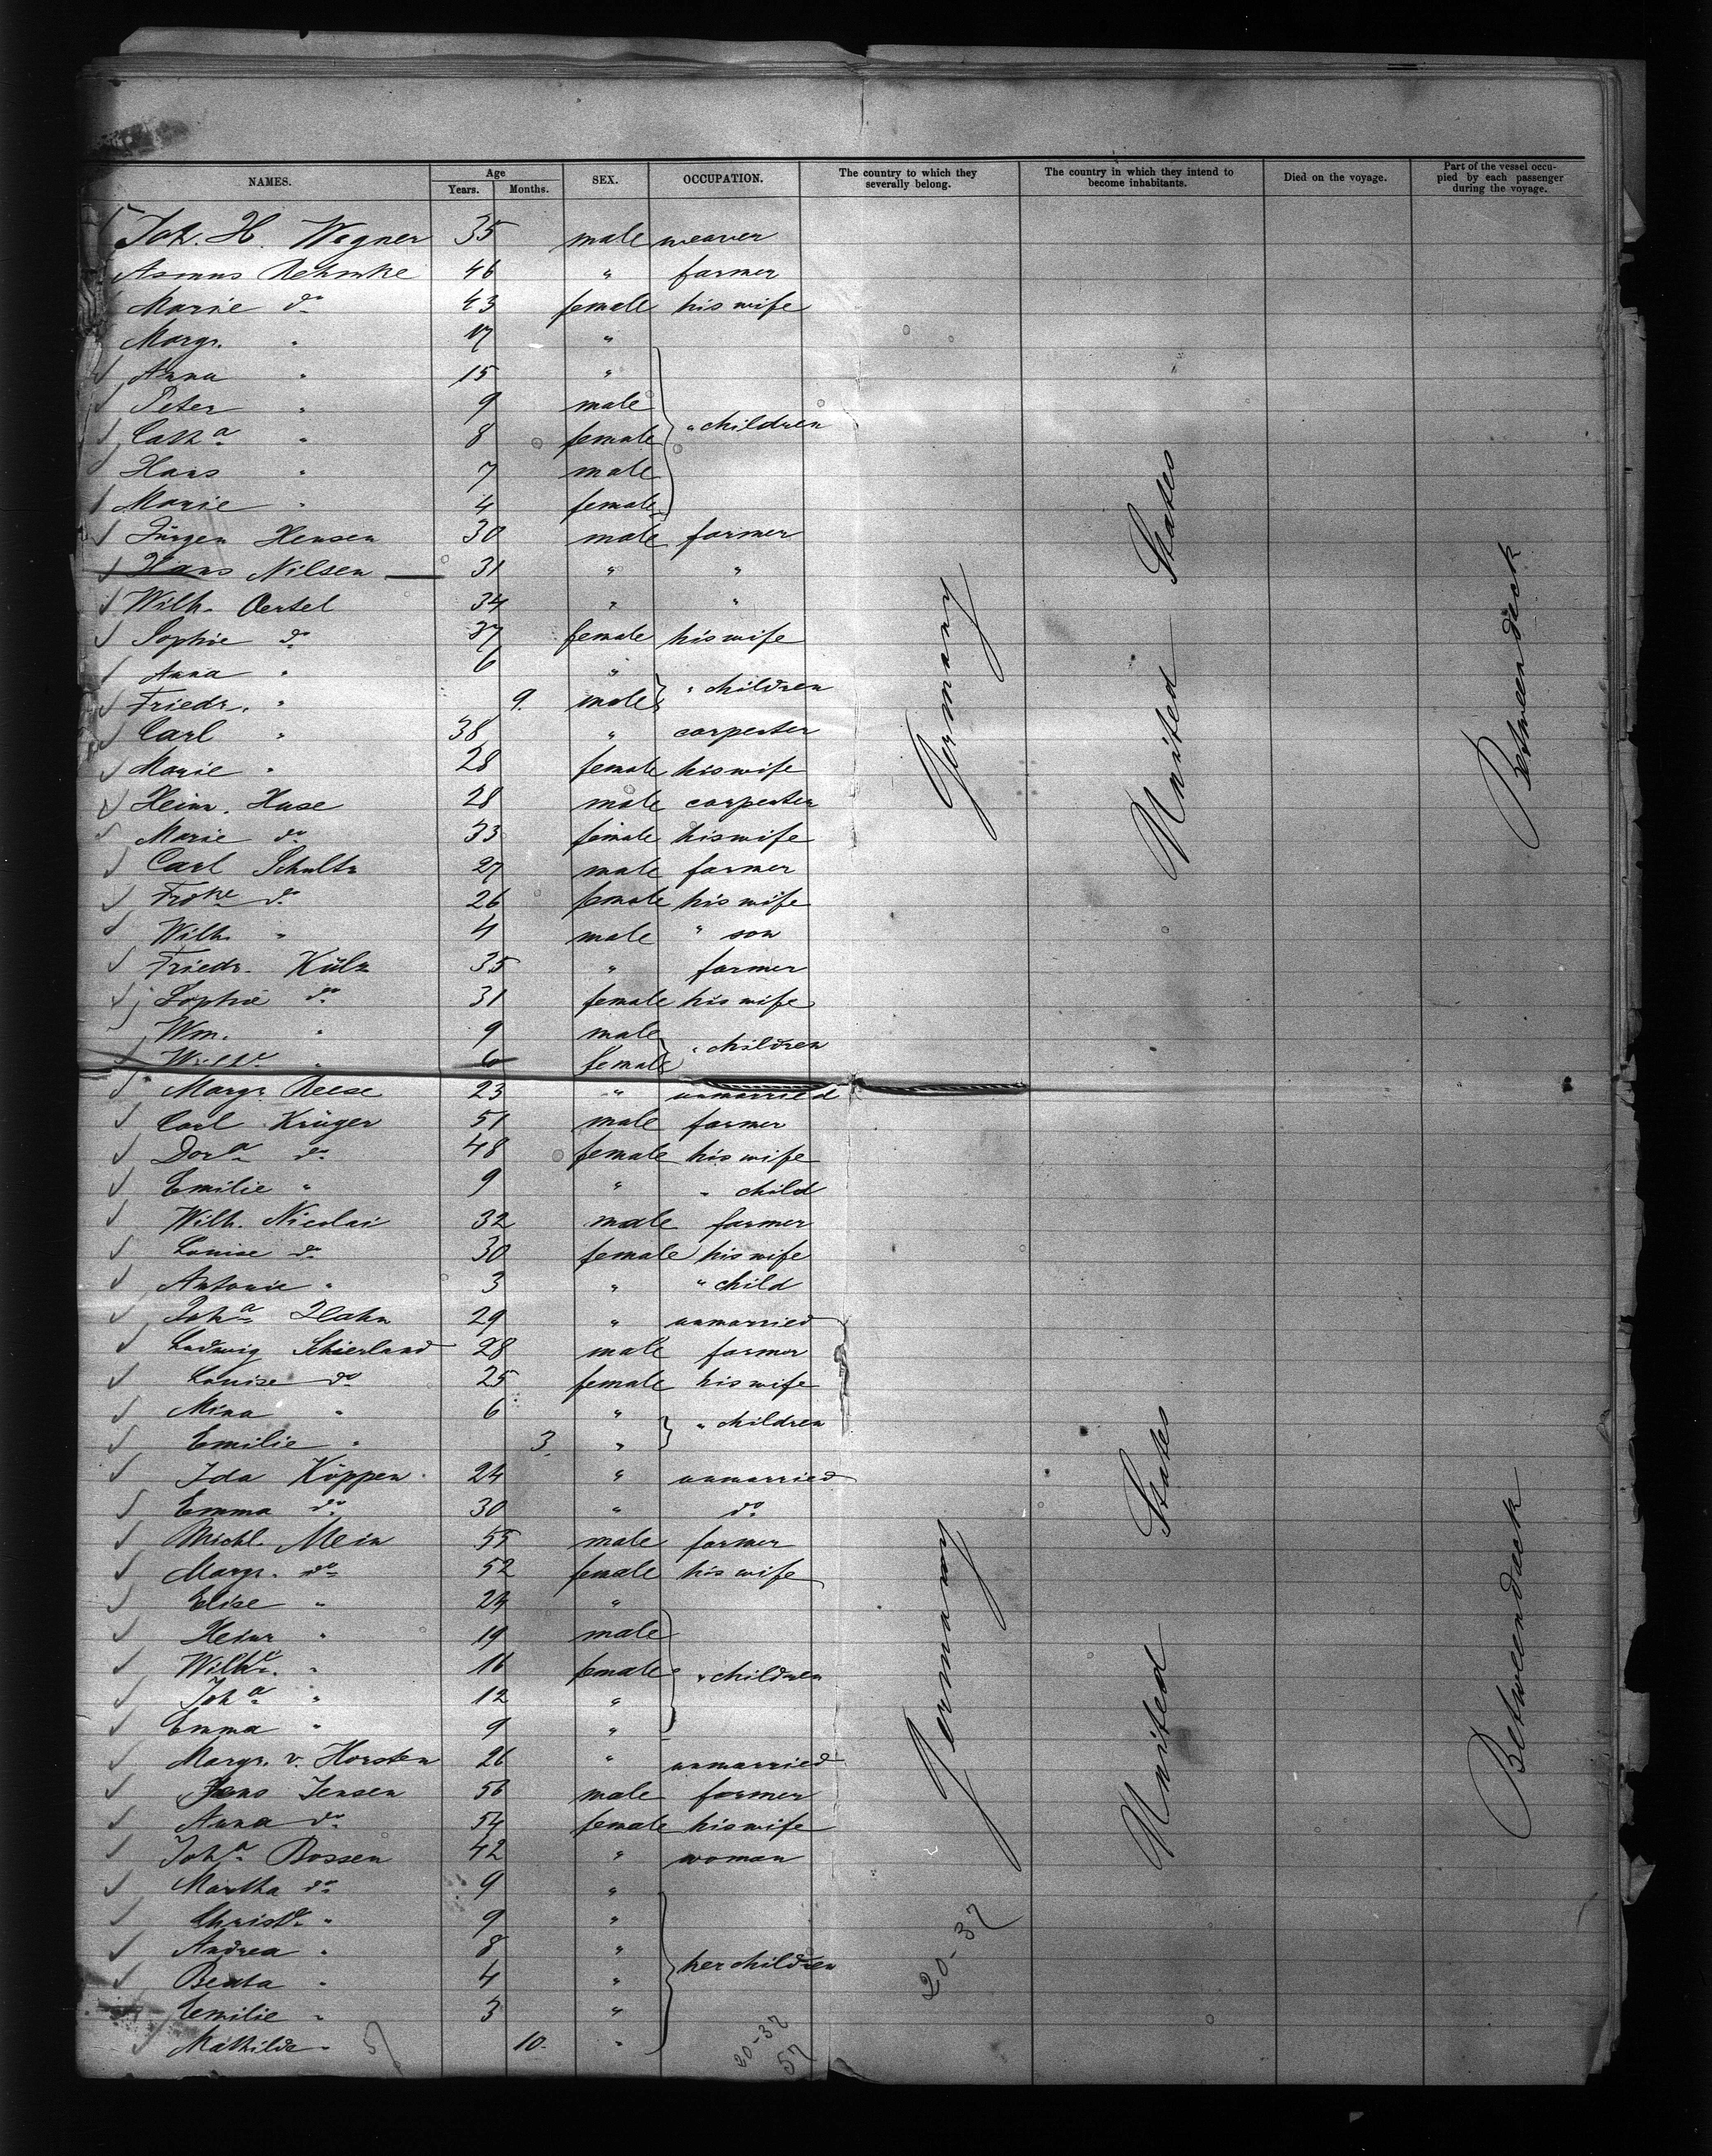 NAMES. Age Years. Months. SEX. OCCUPATION. The country to which they severally belong. The country in which they intend to become inhabitants. Died on the voyage. Part of the vessel occupied by each passenger during the voyage.
Joh. H. Wagner 35 male weaver
Asmus Rehmke 46 " farmer
Marie do 43 female his wife
Margr. " 17 "
Anna " 15 "
Peter " 9 male
Catha " 8 female " children
Hans " 7 male
Marie " 4 female
Jürgen Hensen 30 male farmer
Hans Nilsen 31 " "
Wilh. Oertel 34 " "
Sophie do 37 female his wife
Anna " 6 "
Friedr. " 9. male " children
Carl " 38 " carpenter
Marie " 28 female his wife
Heinr. Huse 28 male carpenter
Marie do 33 female his wife
Carl Schultz 27 male farmer
Frdke do 26 female his wife
Wilh. " 4 male " son
Friedr. Külz 35 " farmer
Sophie do 31 female his wife
Wm. " 9 male
Wilhe " 6 female " children
Margr. Reese 23 " unmarried
Carl Krüger 51 male farmer
Dora do 48 female his wife
Emilie " 9 " " child
Wilh. Nicolai 32 male farmer
Louise do 30 female his wife
Antonie " 3 " " child
Joha Hahn 29 " unmarried
Ludwig Schierland 28 male farmer
Louise do 25 female his wife
Mina " 6 " " children
Emilie " 3. "
Ida Köppen 24 " unmarried
Emma do 30 " do
Michl. Mein 55 male farmer
Margr. do 52 female his wife
Elise " 24 "
Heinr " 19 male
Wilhe. " 16 female " children
Joha " 12 "
Emma " 9 "
Margr. v. Horsten 26 " unmarried
Jens Jensen 56 male farmer
Anna do 54 female his wife
Joha Bossen 42 " woman
Martha do 9 "
Christe " 9 "
Andrea " 8 "
Beata " 4 " her children
Emilie " 3 "
Mathilde " 10. "
Germany
United States
Betweendeck
Germany
United States
Betweendeck
20-37
20-37
57